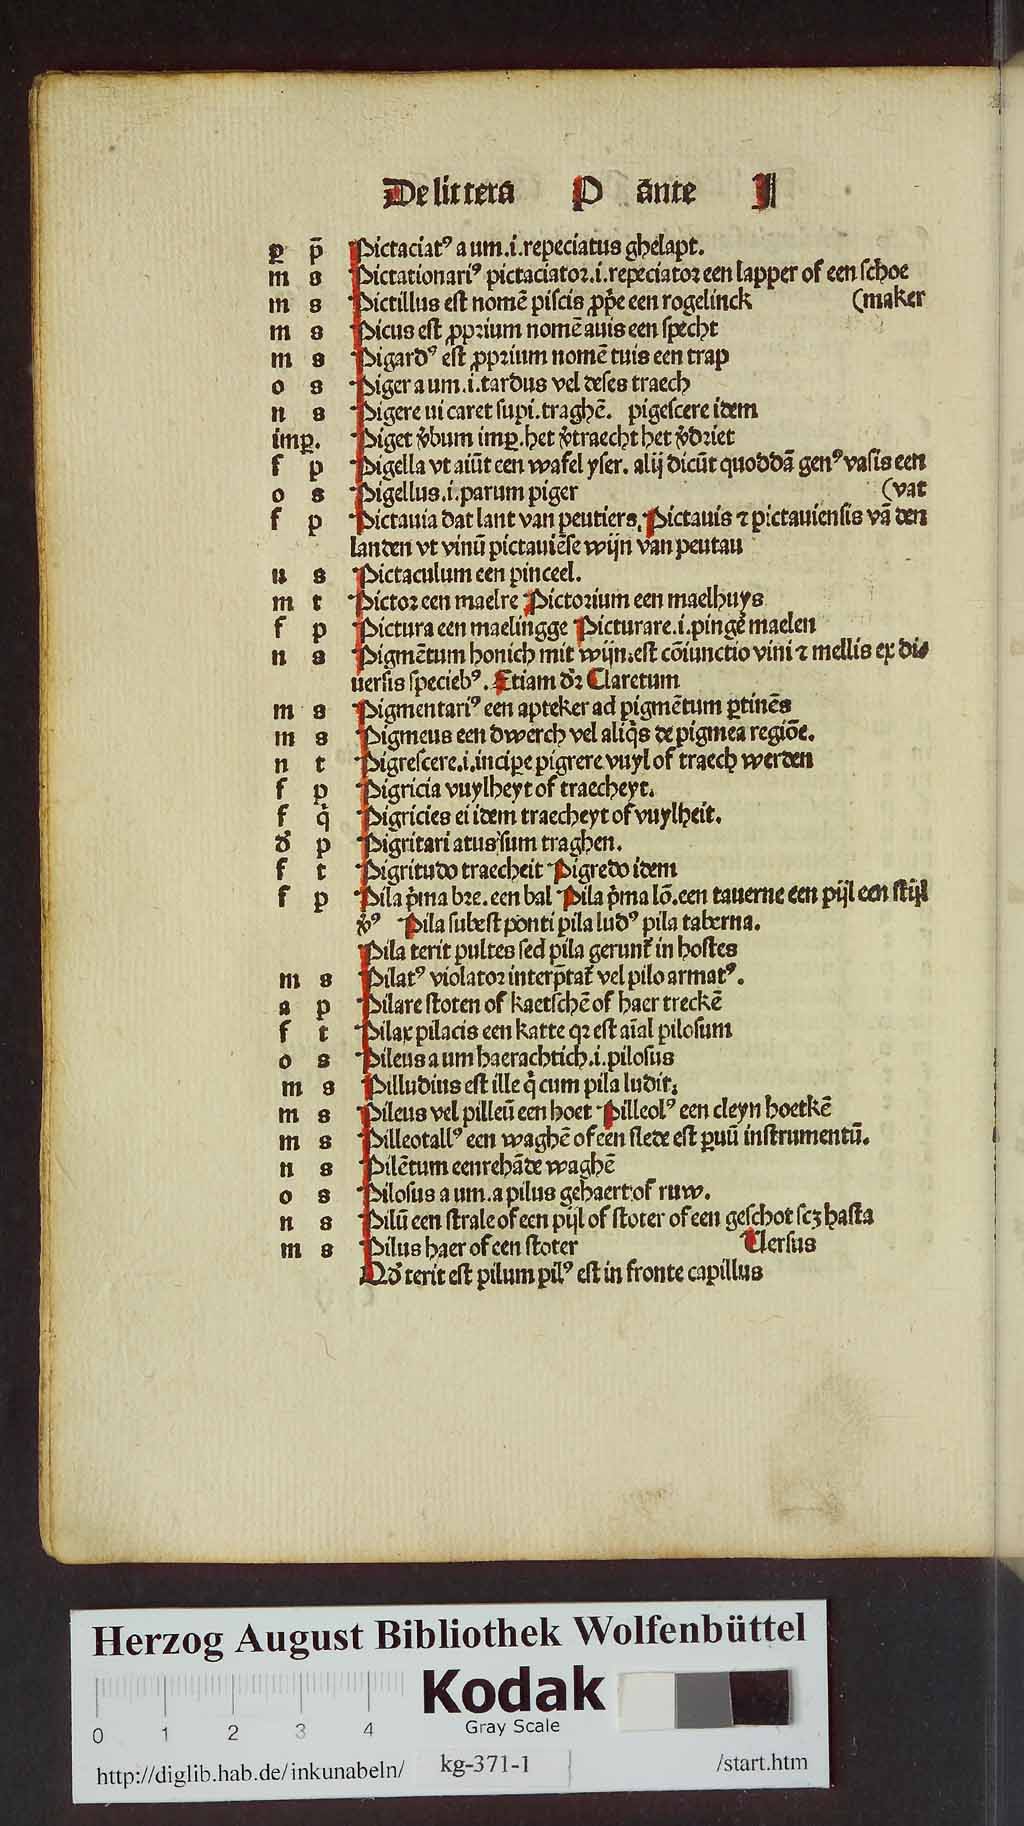 De littera P ante I
ꝑ p̄ Pictaciatꝰ a um .i. repeciatus ghelapt.
m s Pictationariꝰ pictaciator .i. repeciator een lapper of een schoe
m s Pictillus est nomē piscis ꝓpͥe een rogelinck (maker
m s Picus est ꝓprium nomē auis een specht
m s Pigardꝰ est ꝓprium nomē tuis een trap
o s Piger a um .i. tardus vel deses traech
n s Pigere ui caret supi. traghē. pigescere idem
imꝑ. Piget v̓bum imꝑ. het v̓traecht het v̓driet
f p Pigella vt aiūt een wafel yser. alij dicūt quoddā genꝰ vasis een
o s Pigellus .i. parum piger (vat
f p Pictauia dat lant van peutiers, Pictauis ⁊ pictauiensis vā den
landen vt vinū pictauiēse wijn van peutau
n s Pictaculum een pinceel.
m t Pictor een maelre Pictorium een maelhuys
f p Pictura een maelingge Picturare .i. pinge᷑ maelen
n s Pigmētum honich mit wijn. est cōiunctio vini ⁊ mellis ex di⸗
uersis speciebꝰ. Etiam dr̄ Claretum
m s Pigmentariꝰ een apteker ad pigmētum ꝑtinēs
m s Pigmeus een dwerch vel aliq̄s de pigmea regiōe.
n t Pigrescere .i. incipe pigrere vuyl of traech werden
f p Pigricia vuylheyt of traecheyt.
f q̄ Pigricies ei idem traecheyt of vuylheit.
d᷑ p Pigritari atus sum traghen.
f t Pigritudo traecheit Pigredo idem
f p Pila pͥma bre. een bal Pila pͥma lō. een tauerne een pijl een stijl
v̓ꝰ Pila subest ponti pila ludꝰ pila taberna.
Pila terit pultes sed pila gerunt᷑ in hostes
m s Pilatꝰ violator interp̄tat᷑ vel pilo armatꝰ.
a p Pilare stoten of kaetschē of haer treckē
f t Pilax pilacis een katte qꝛ est aīal pilosum
o s Pileus a um haerachtich .i. pilosus
m s Pilludius est ille qͥ cum pila ludit.
m s Pileus vel pilleū een hoet Pilleolꝰ een cleyn hoetkē
m s Pilleotallꝰ een waghē of een slede est ꝑuū instrumentū.
n s Pilētum een rehāde waghē
o s Pilosus a um. a pilus gehaert of ruw.
n s Pilū een strale of een pijl of stoter of een geschot scꝫ hasta
m s Pilus haer of een stoter Uersus
Qd᷑ terit est pilum pilꝰ est in fronte capillus
Herzog August Bibliothek Wolfenbüttel
Kodak
Gray Scale
0 1 2 3 4
http://diglib.hab.de/inkunabeln/ kg-371-1 /start.htm